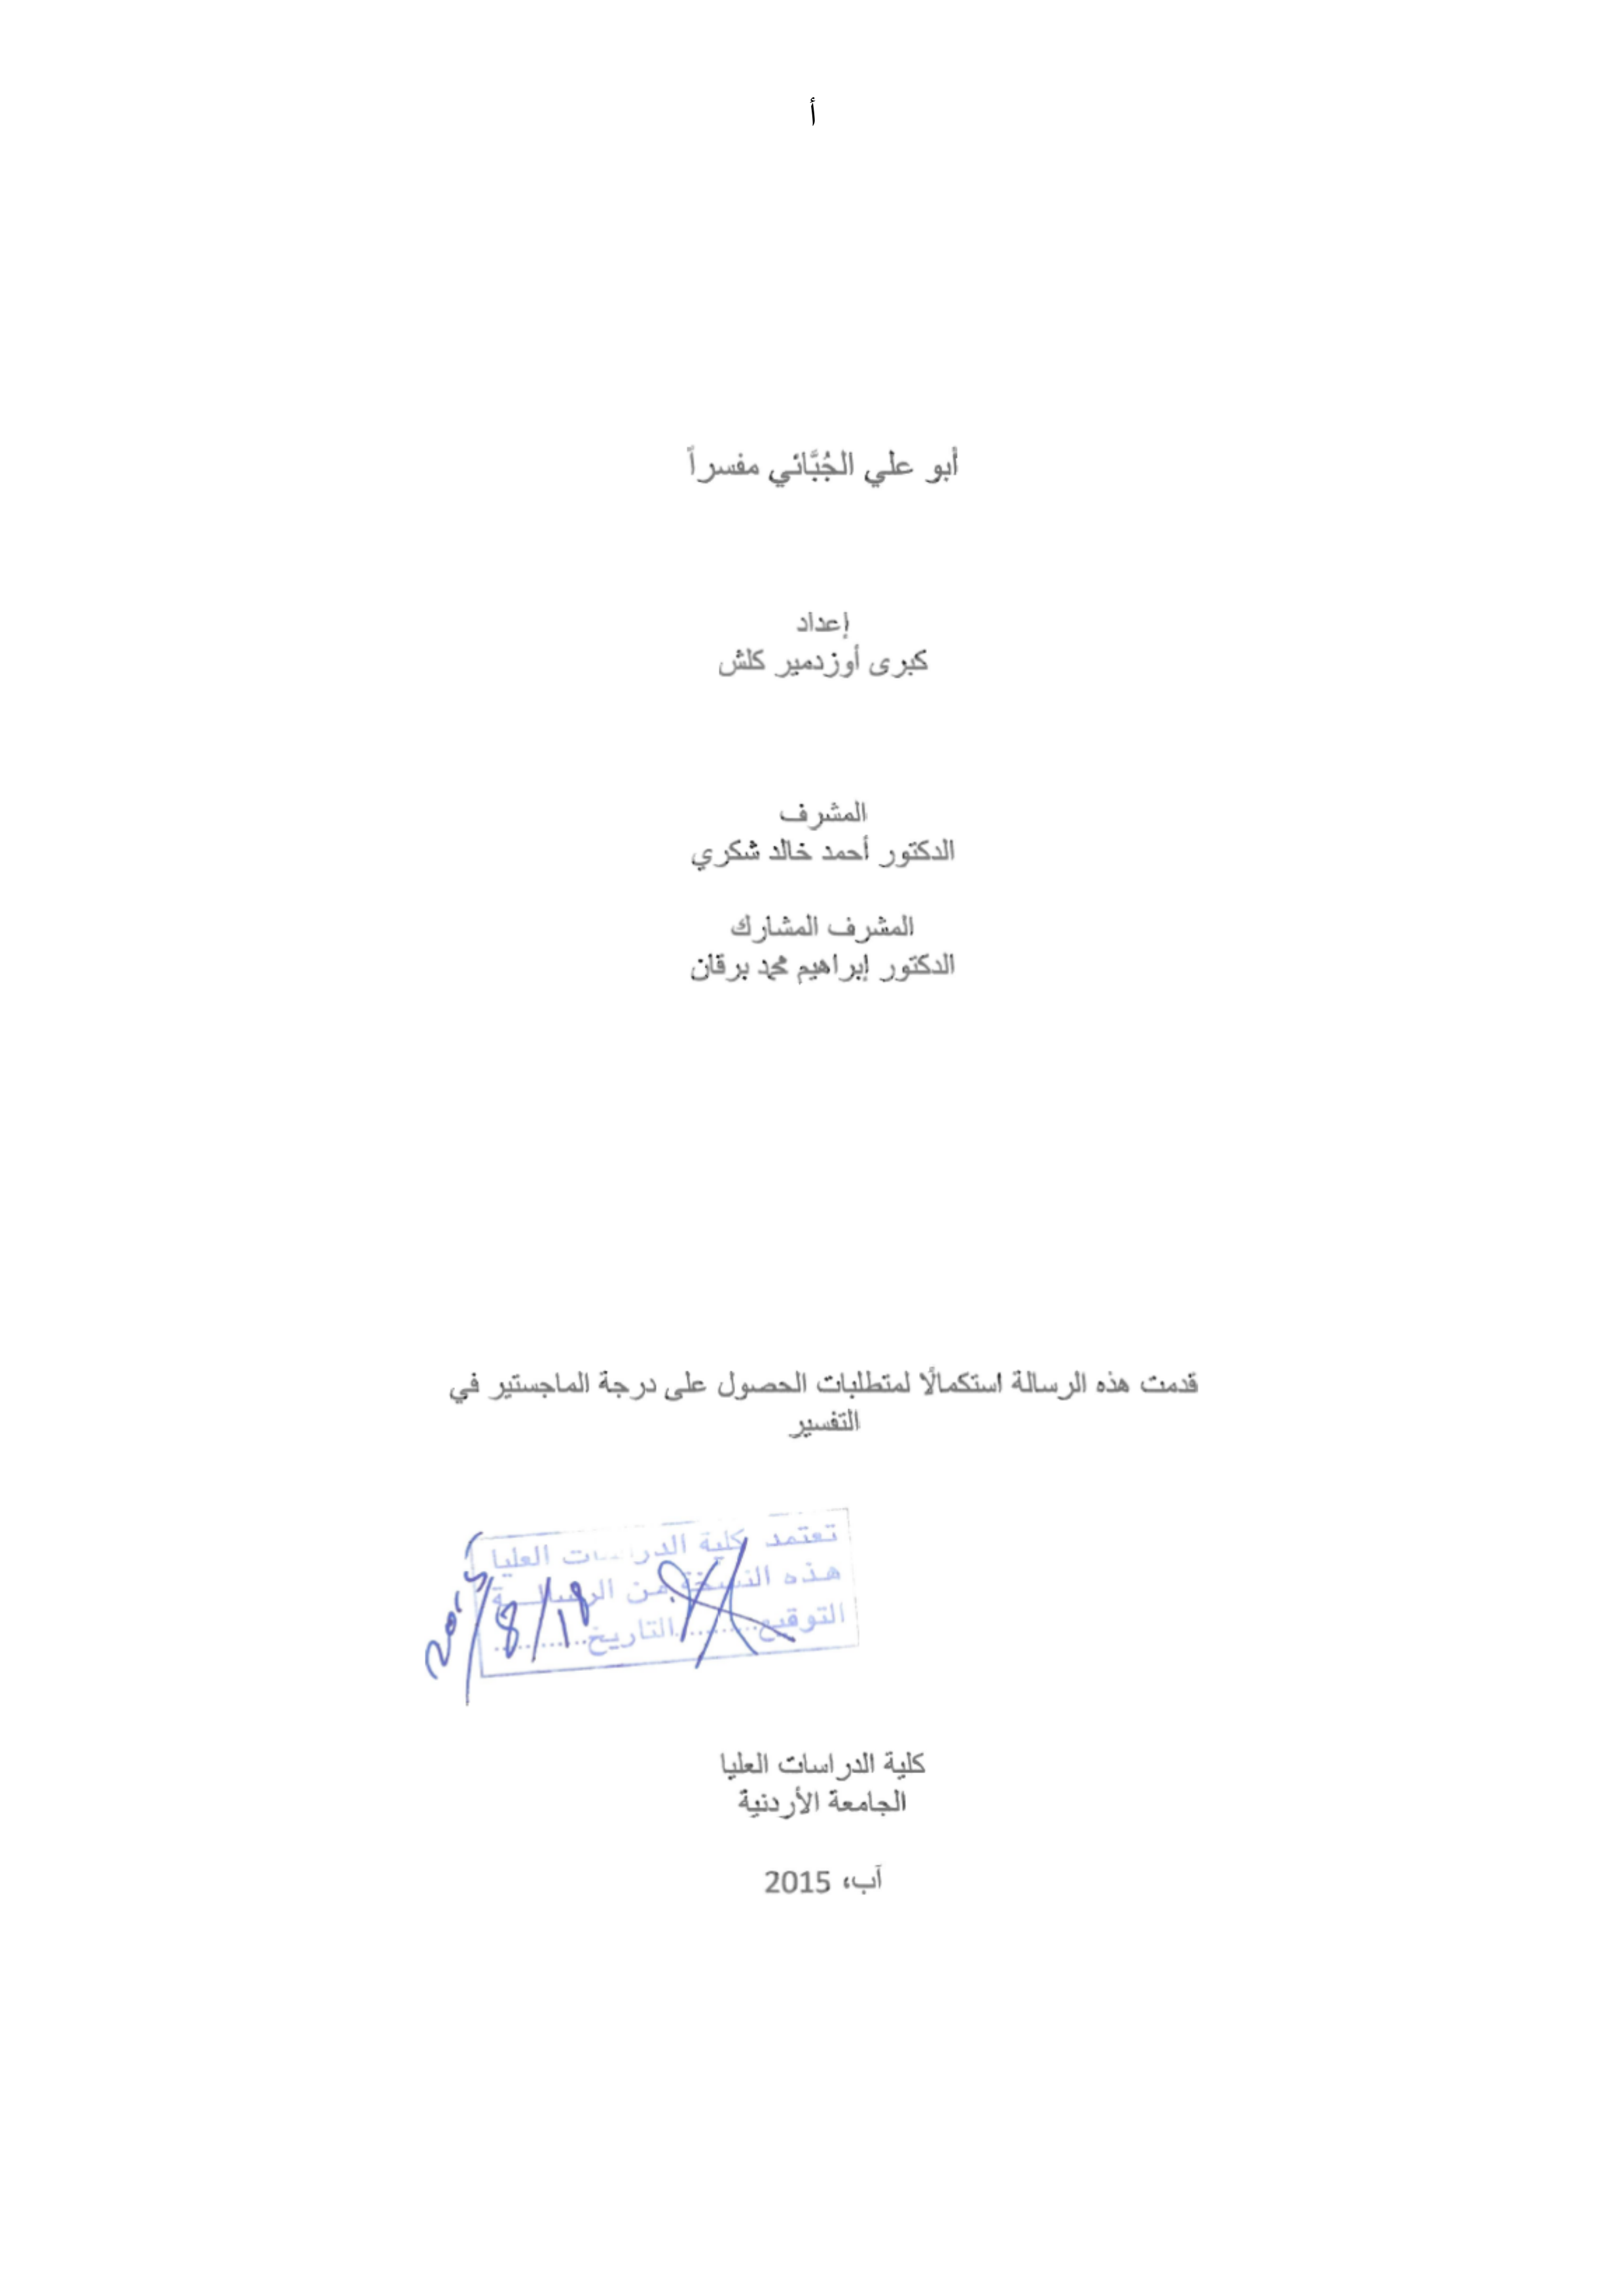 أ
أبو علي الجُبَّائي مفسراً
إعداد
كبرى أوزدمير كلش
المشرف
الدكتور أحمد خالد شكري
المشرف المشارك
الدكتور إبراهيم محمد برقان
قدمت هذه الرسالة استكمالًا لمتطلبات الحصول على درجة الماجستير في
التفسير
تعتمد كلية الدراسات العليا
هذه النسخة من الرسالـــة
التوقيع............التاريخ............
18/8/2015
كلية الدراسات العليا
الجامعة الأردنية
آب، 2015